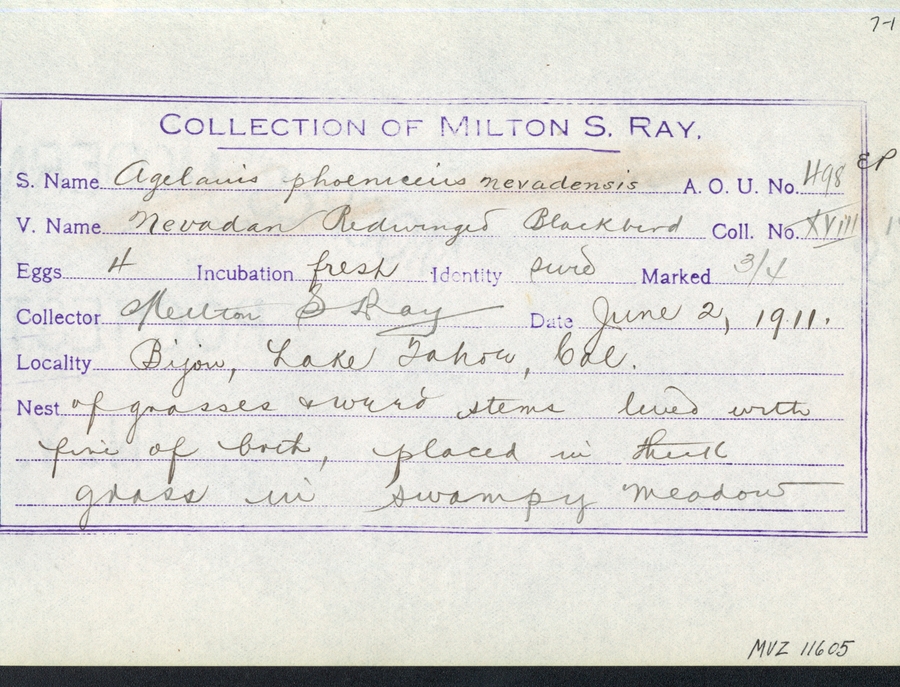 7-1
COLLECTION OF MILTON S. RAY.
S. Name Agelaius phoeniceus nevadensis A. O. U. No. 498 EP
V. Name Nevadan Redwinged Blackbird Coll. No. XVIII
Eggs 4 Incubation fresh Identity sure Marked 3/4
Collector Milton S Ray Date June 2, 1911.
Locality Bijou, Lake Tahoe, Cal.
Nest of grasses & weed stems lined with
fine of both, placed in thick
grass in swampy meadow
MVZ 11605